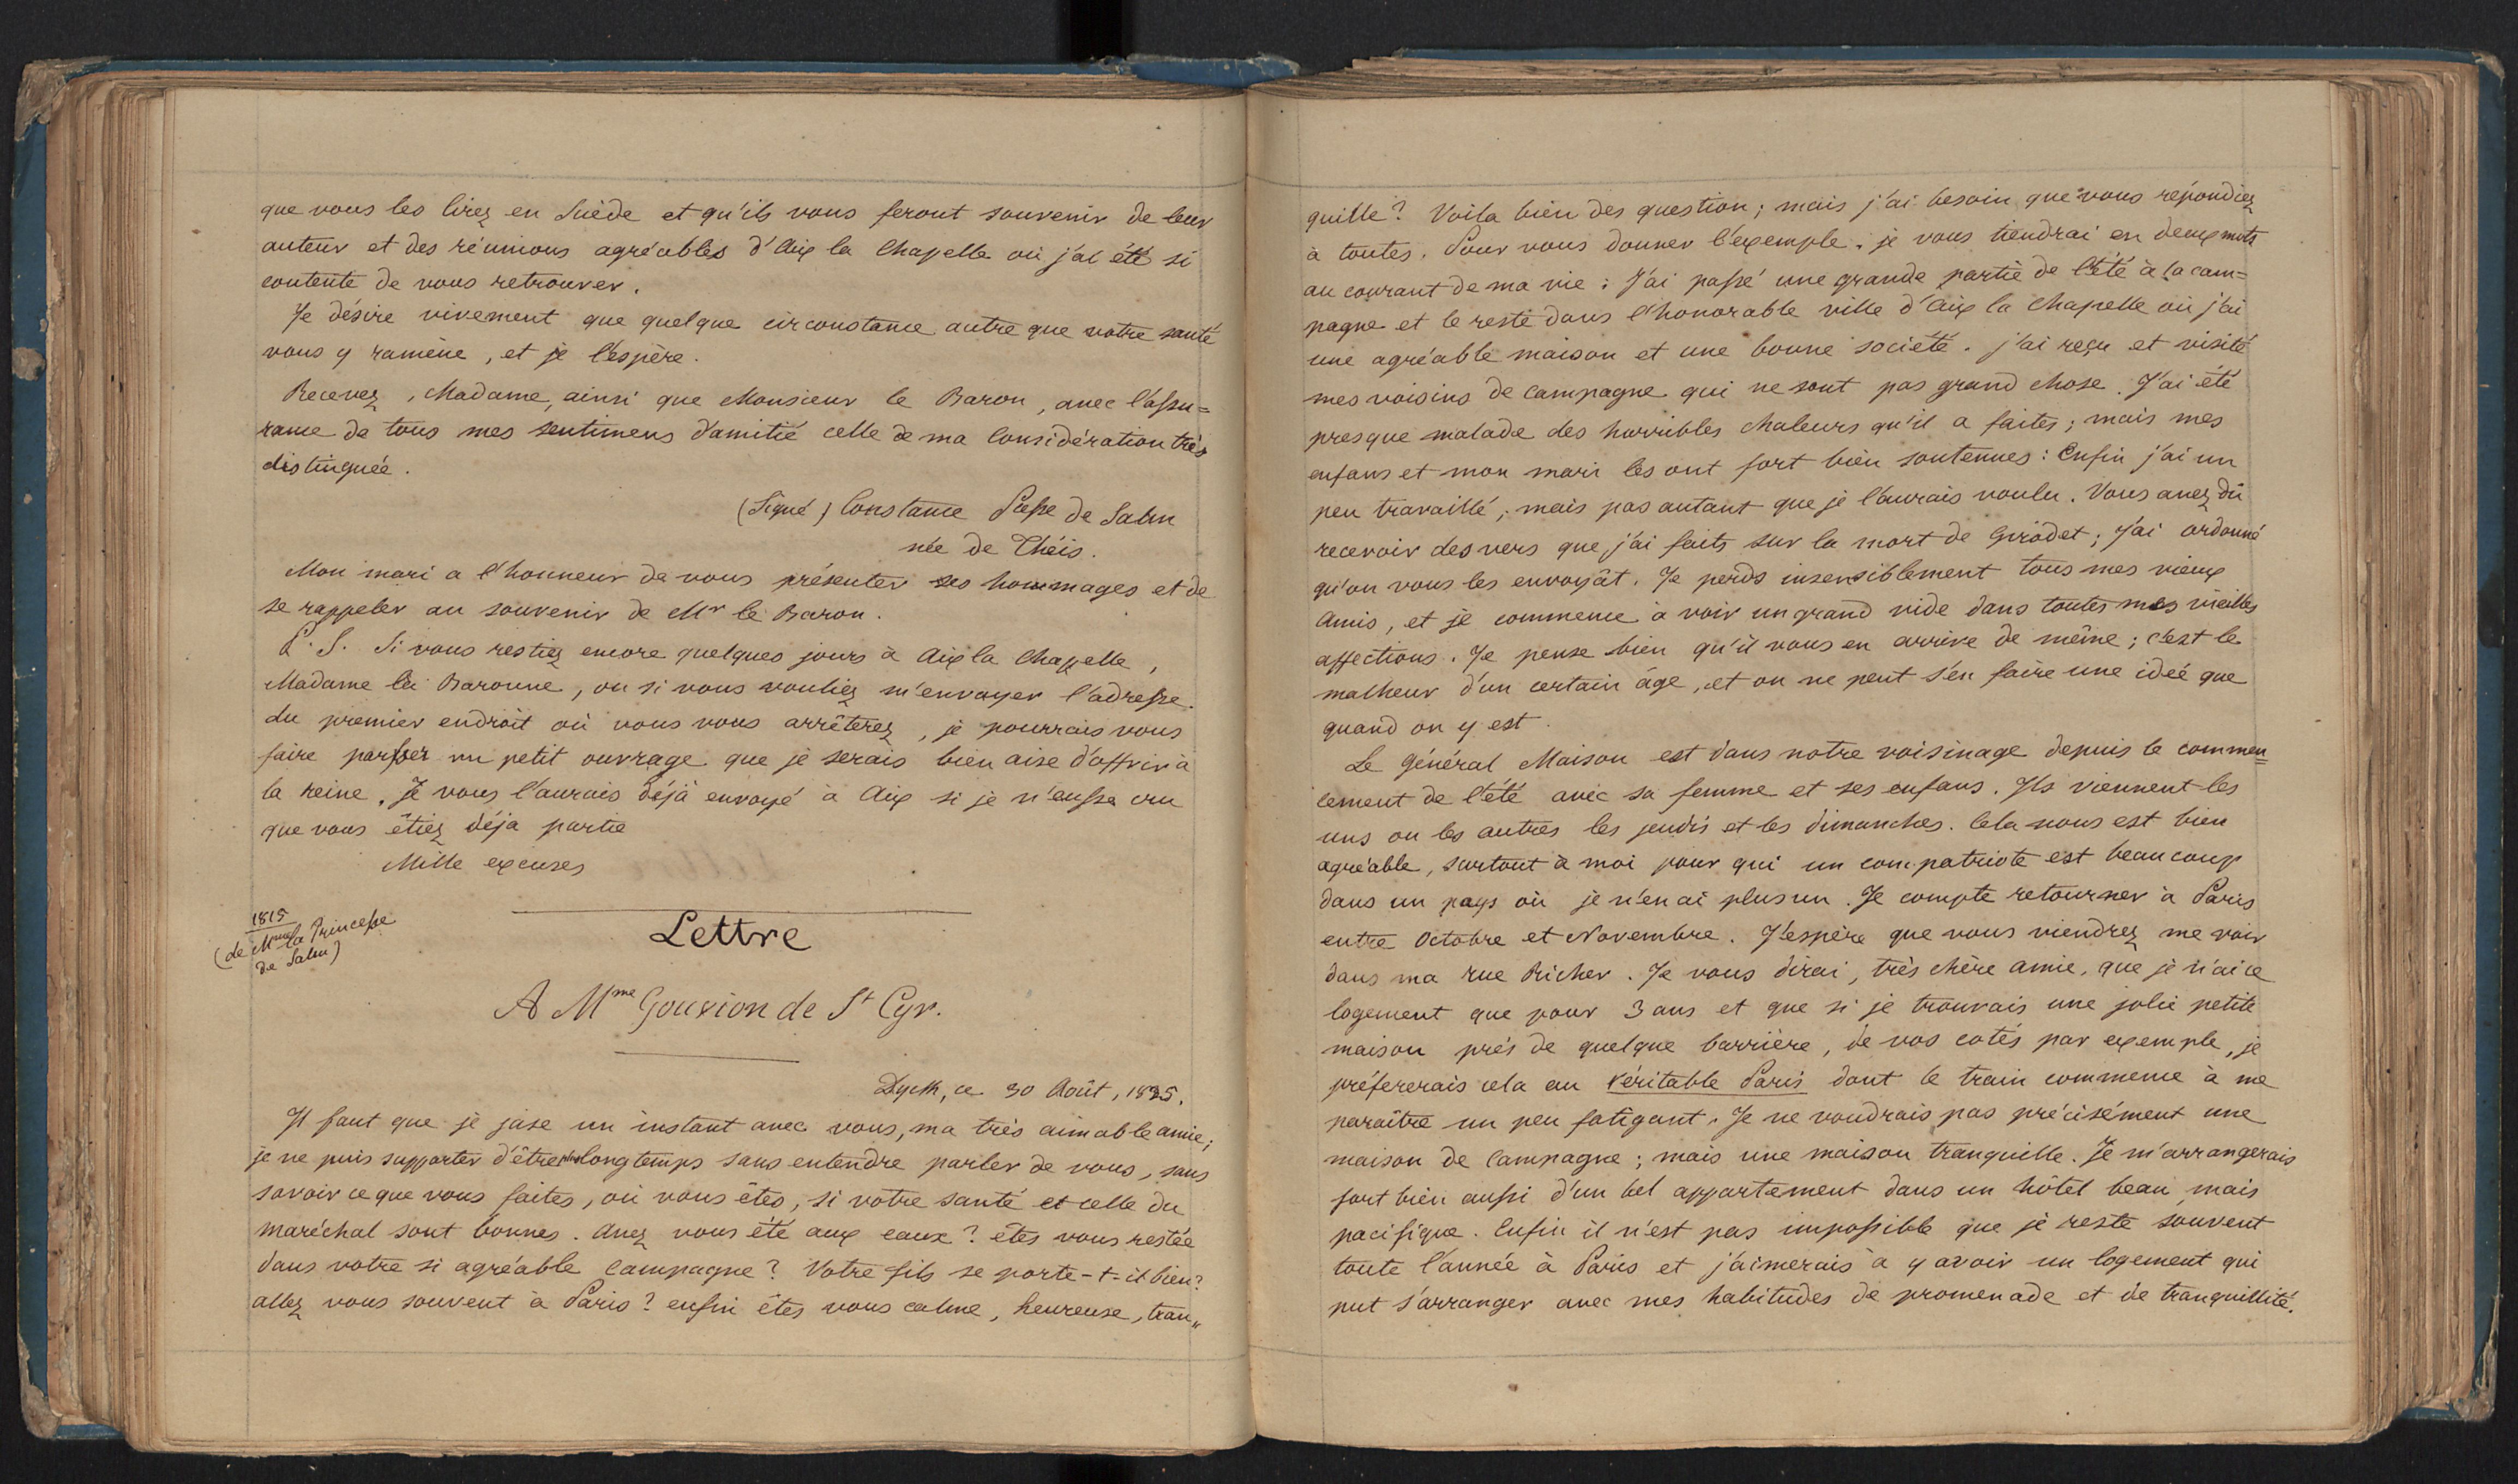 que vous les lirez en Suède et qu'ils vous feront souvenir de leur
auteur et des réunions agréables d'Aix la Chapelle où j'ai été si
contente de vous retrouver.
Je désire vivement que quelque circonstance autre que votre santé
vous y ramène, et je l'espère.
Recevez, Madame, ainsi que Monsieur le Baron, avec l'assu=
rance de tous mes sentimens d'amitié celle de ma Considération très
distinguée.
(Signé) Constance Psse de Salm
née de Théis.
Mon mari a l'honneur de vous présenter ses hommages et de
se rappeler au souvenir de Mr le Baron.
P. S. Si vous restiez encore quelques jours à Aix la Chapelle,
Madame la Baronne, ou si vous vouliez m'envoyer l'adresse
du premier endroit où vous vous arrêterez, je pourrais vous
faire passer un petit ouvrage que je serais bien aise d'offrir à
la reine. Je vous l'aurais déjà envoyé à Aix si je n'eusse cru
que vous êtiez déja partie
Mille excuses
1815
(de Mme la Princesse
de Salm)
Lettre
A Mme Gouvion de St Cyr.
Dyck, ce 30 Août, 1825.
Il faut que je jase un instant avec vous, ma très aimable amie;
je ne puis supporter d'être plus longtemps sans entendre parler de vous, sans
savoir ce que vous faites, où vous êtes, si votre santé et celle du
maréchal sont bonnes. Avez vous été aux eaux? êtes vous restée
dans votre si agréable Campagne? Votre fils se porte-t-il bien?
allez vous souvent à Paris? enfin êtes vous calme, heureuse, tran"
quille? Voila bien des question; mais j'ai besoin que vous répondiez
à toutes. Pour vous donner l'exemple, je vous tiendrai en deux mots
au courant de ma vie: J'ai passé une grande partie de l'été à la cam=
pagne et le reste dans l'honorable ville d'Aix la Chapelle où j'ai
une agréable maison et une bonne société. j'ai reçu et visité
mes voisins de campagne qui ne sont pas grand chose. J'ai été
presque malade des horribles chaleurs qu'il a faites; mais mes
enfans et mon mari les ont fort bien soutenues: Enfin j'ai un
peu travaillé, mais pas autant que je l'aurais voulu. Vous avez dû
recevoir des vers que j'ai faits sur la mort de Girodet; j'ai ordonné
qu'on vous les envoyât. Je perds insensiblement tous mes vieux
Amis, et je commence à voir un grand vide dans toutes mes vieilles
affections. Je pense bien qu'il vous en arrive de même; c'est le
malheur d'un certain âge, et on ne peut s'en faire une idée que
quand on y est.
Le Général Maison est dans notre voisinage depuis le commen=
cement de l'été avec sa femme et ses enfans. Ils viennent les
uns ou les autres les jeudis et les dimanches. Cela nous est bien
agréable, surtout à moi pour qui un compatriote est beaucoup
dans un pays où je n'en ai plus un. Je compte retourner à Paris
entre Octobre et Novembre. J'espère que vous viendrez me voir
dans ma rue Richer. Je vous dirai, très chère amie, que je n'ai ce
logement que pour 3 ans et que si je trouvais une jolie petite
maison près de quelque barrière, de vos cotés par exemple, je
préfererais cela au véritable Paris dont le train commence à me
paraître un peu fatigant. Je ne voudrais pas précisément une
maison de Campagne; mais une maison tranquille. Je m'arrangerais
fort bien aussi d'un bel appartement dans un hôtel beau mais
pacifique. Enfin il n'est pas impossible que je reste souvent
toute l'année à Paris et j'aimerais à y avoir un logement qui
put s'arranger avec mes habitudes de promenade et de tranquillité.